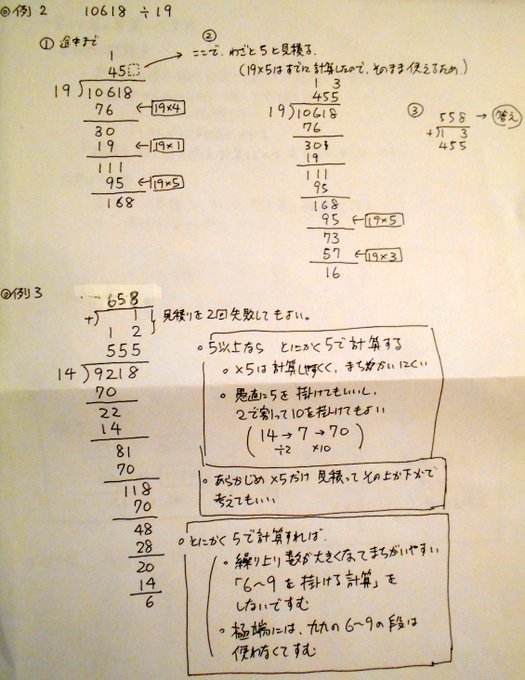 ◎例2 10618 ÷19
① 途中まで
②
ここで、わざと5と見積る。
(19×5はすでに計算したので、そのまま使えるため。)
1
45
19)10618
76 ←19×4
30
19 ←19×1
111
95 ←19×5
168
1 3
455
19)10618
76
30
19
111
95
168
95 ←19×5
73
57 ←19×3
16
③
558 →答え
+)1 3
455
◎例3
658
+) 1
1 2
見積りを2回失敗してもよい。
555
14)9218
70
22
14
81
70
118
70
48
28
20
14
6
○5以上なら とにかく5で計算する
○×5は計算しやすくく、まちがいにくい
○愚直に5を掛けてもいいし、
2で割って10を掛けてもよい
(14→7→70)
÷2 ×10
○あらかじめ×5だけ見積ってその上か下かで
考えてもいい
○とにかく5で計算すれば、
○繰り上り数が大きくなってまちがいやすい
「6〜9を掛ける計算」を
しないですむ
○極端には、九九の6〜9の段は
使わなくてすむ